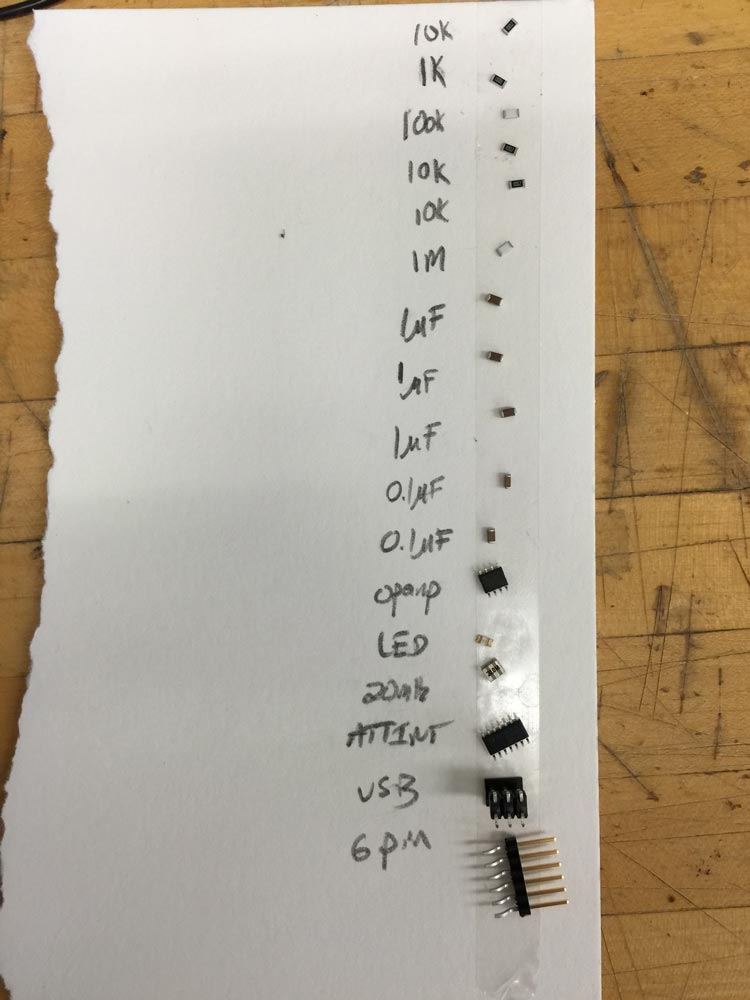 10K
1K
100K
10K
10K
1M
1µF
1µF
1µF
0.1µF
0.1µF
opamp
LED
20mhz
ATTINY
USB
6 pin